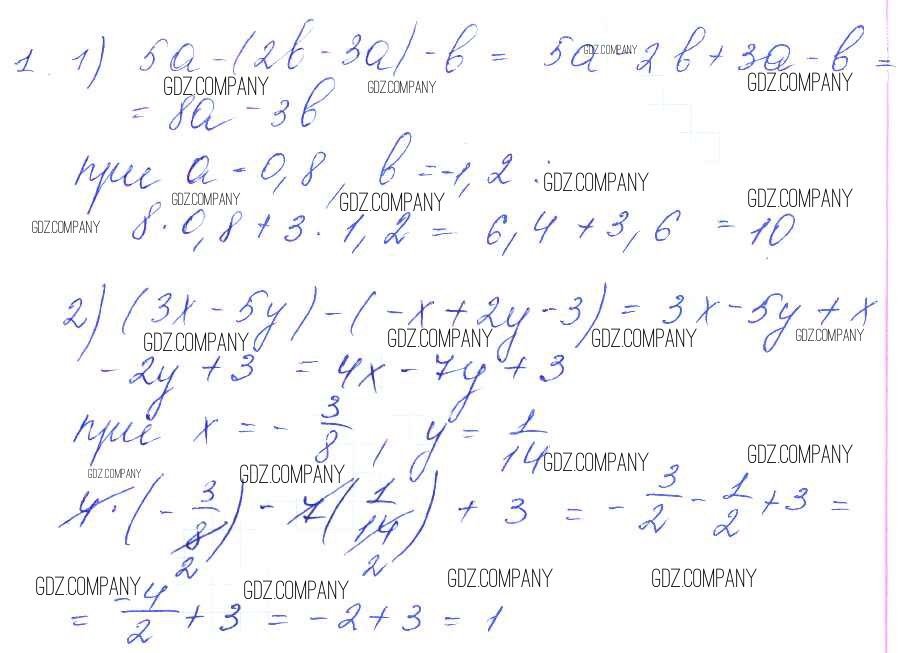 1. 1) 5a - (2b - 3a) - b = 5a - 2b + 3a - b =
GDZ.COMPANY GDZ.COMPANY GDZ.COMPANY GDZ.COMPANY
= 8a - 3b
при a = 0,8, b = -1,2 :
GDZ.COMPANY GDZ.COMPANY GDZ.COMPANY GDZ.COMPANY
GDZ.COMPANY 8 · 0,8 + 3 · 1,2 = 6,4 + 3,6 = 10
2) (3x - 5y) - (-x + 2y - 3) = 3x - 5y + x
GDZ.COMPANY GDZ.COMPANY GDZ.COMPANY GDZ.COMPANY
- 2y + 3 = 4x - 7y + 3
при x = - 3/8, y = 1/14
GDZ.COMPANY GDZ.COMPANY GDZ.COMPANY GDZ.COMPANY
4 · (- 3/8) - 7 (1/14) + 3 = - 3/2 - 1/2 + 3 =
2 2
GDZ.COMPANY GDZ.COMPANY GDZ.COMPANY GDZ.COMPANY
= -4/2 + 3 = -2 + 3 = 1